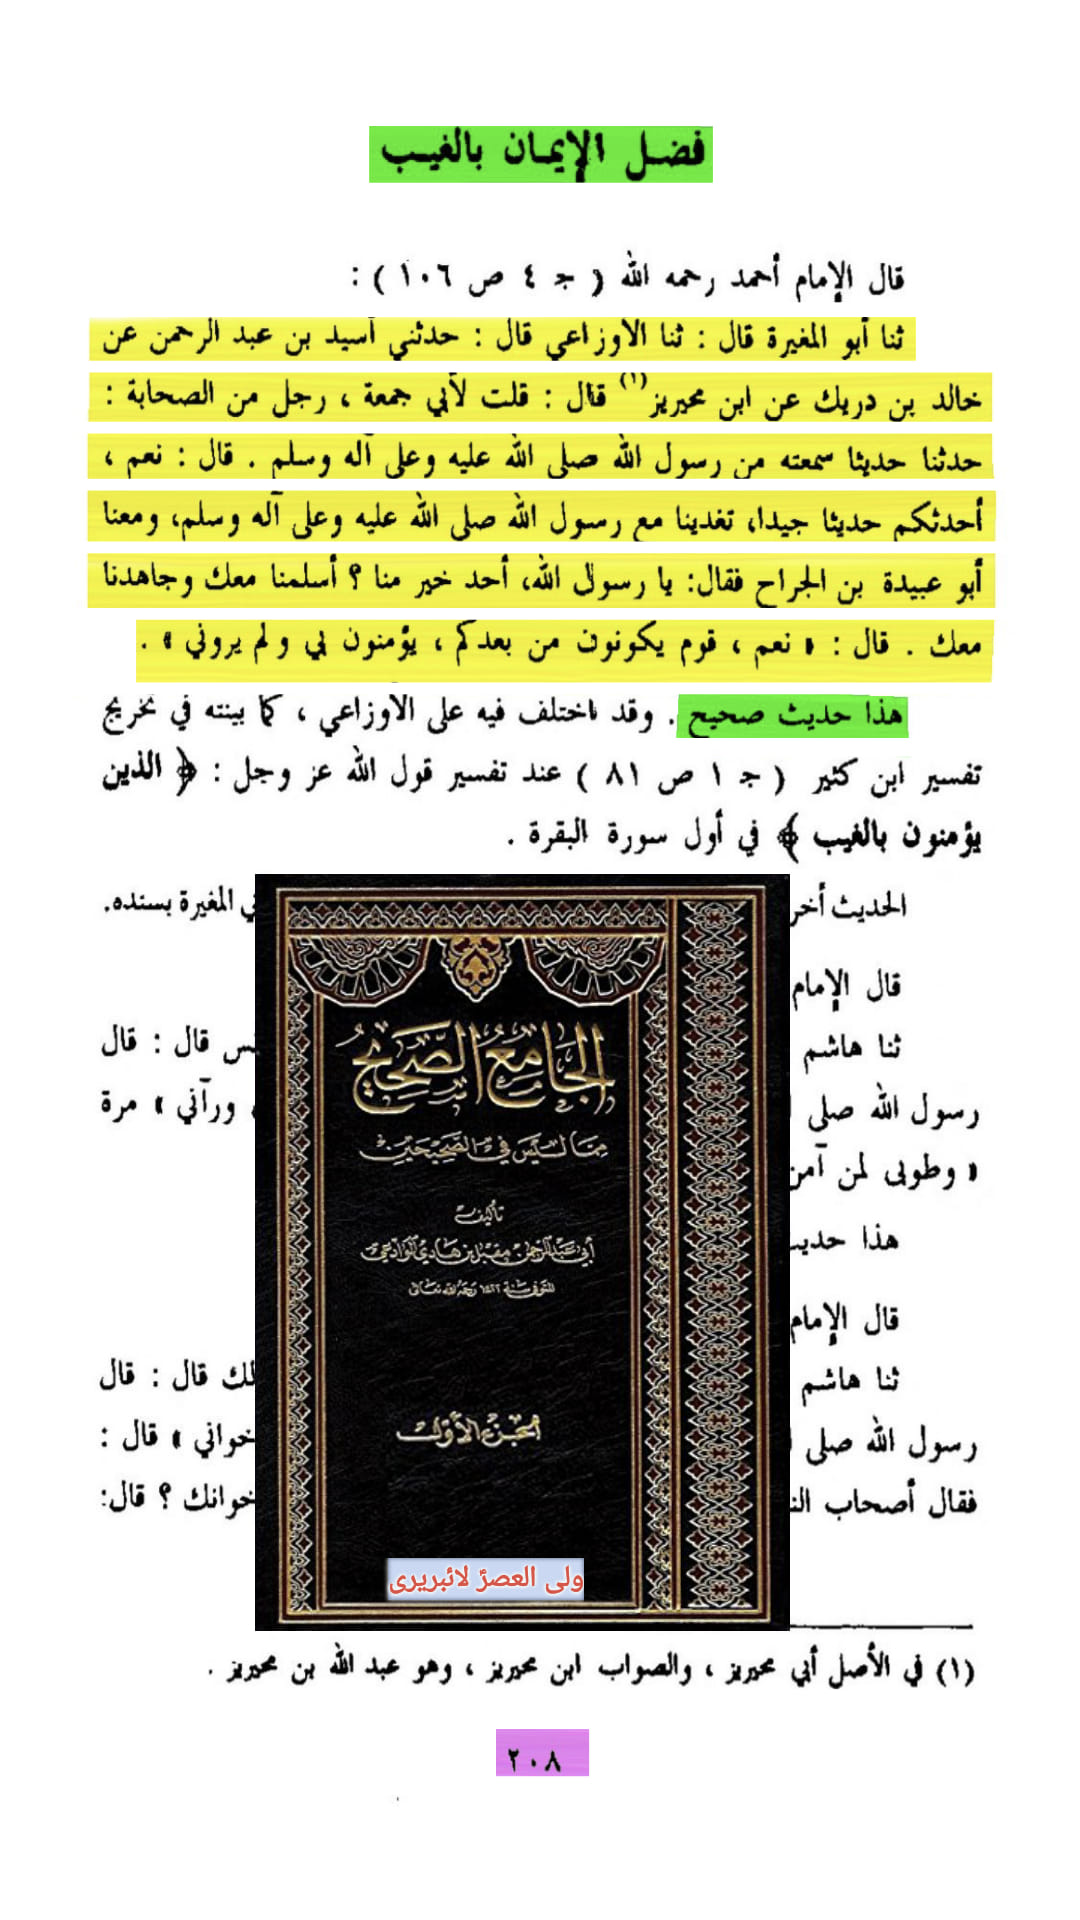 فضل الإيمان بالغيب
قال الإمام أحمد رحمه الله ( جـ ٤ ص ١٠٦ ) :
ثنا أبو المغيرة قال : ثنا الأوزاعي قال : حدثني أسيد بن عبد الرحمن عن
خالد بن دريك عن ابن محيريز(١) قال : قلت لأبي جمعة ، رجل من الصحابة :
حدثنا حديثا سمعته من رسول الله صلى الله عليه وعلى آله وسلم . قال : نعم ،
أحدثكم حديثا جيدا، تغدينا مع رسول الله صلى الله عليه وعلى آله وسلم، ومعنا
أبو عبيدة بن الجراح فقال: يا رسول الله، أحد خير منا ؟ أسلمنا معك وجاهدنا
معك . قال : « نعم ، قوم يكونون من بعدكم ، يؤمنون بي ولم يروني » .
هذا حديث صحيح . وقد اختلف فيه على الأوزاعي ، كما بينته في تخريج
تفسير ابن كثير ( جـ ١ ص ٨١ ) عند تفسير قول الله عز وجل : ﴿ الذين
يؤمنون بالغيب ﴾ في أول سورة البقرة .
الحديث أخر
ي المغيرة بسنده.
قال الإمام
ثنا هاشم
س قال : قال
رسول الله صلى
ورآني » مرة
« وطوبى لمن آمن
هذا حديث
قال الإمام
ثنا هاشم
لك قال : قال
رسول الله صلى
خواني » قال :
فقال أصحاب الن
خوانك ؟ قال:
الجامع الصحيح
مما ليس في الصحيحين
تأليف
أبي عبد الرحمن مقبل بن هادي الوادعي
المتوفى سنة ١٤٢٢ رحمه الله تعالى
الجزء الأول
ولی العصرؑ لائبریری
(١) في الأصل أبي محيريز ، والصواب ابن محيريز ، وهو عبد الله بن محيريز .
٢٠٨